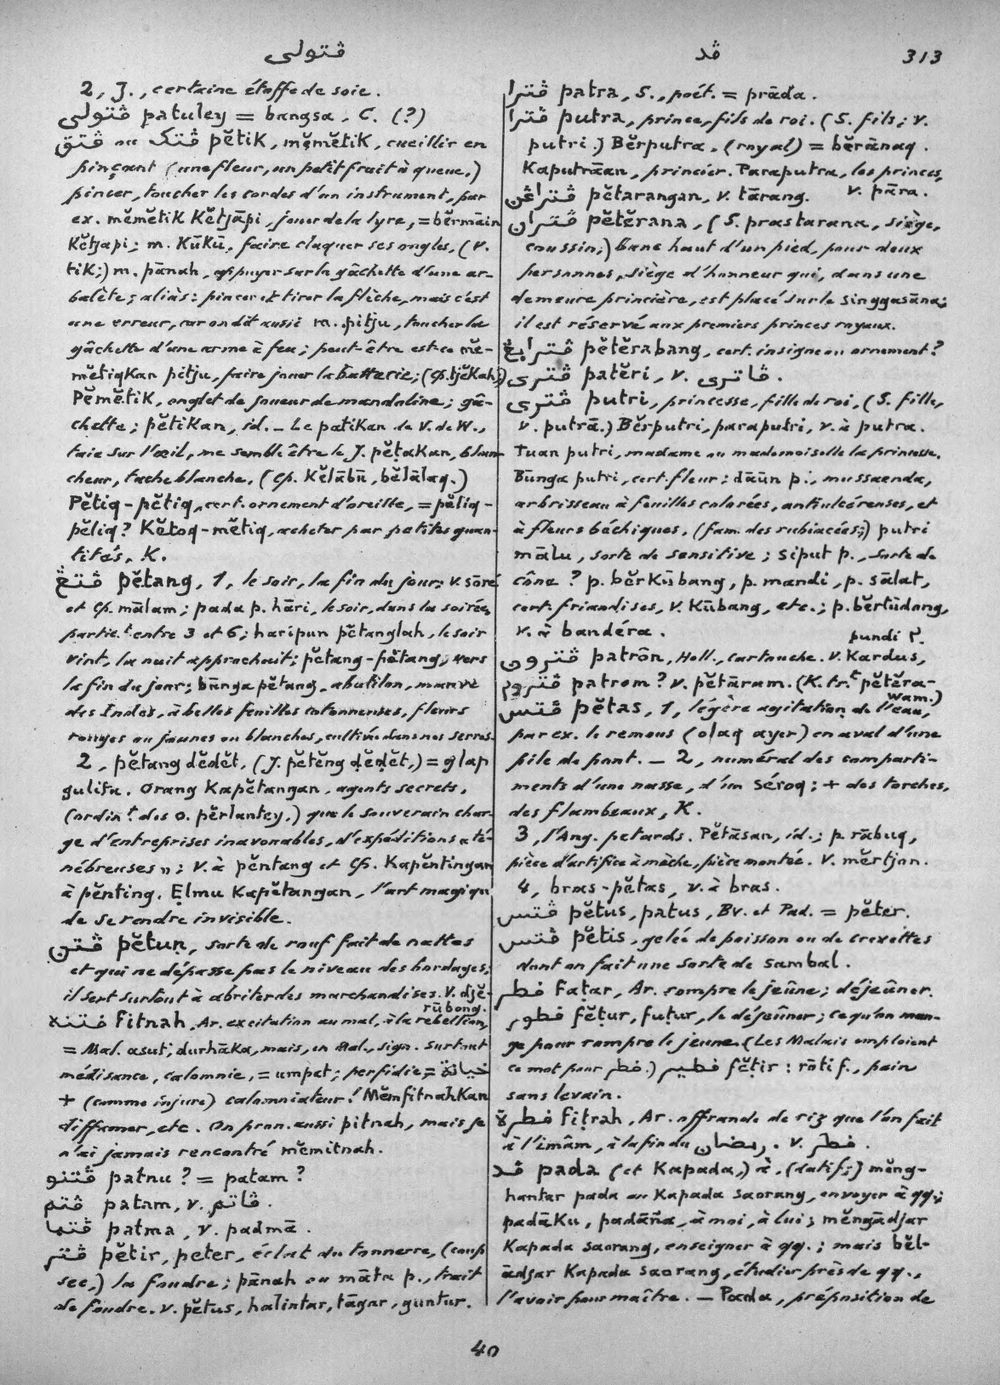 ڤتولى
ڤد
313
2, J., certaine étoffe de soie.
ڤتولى patuley = bangsa, C. (?)
ڤتق ou ڤتک pĕtik, mĕmĕtik, cueillir en
pinçant (une fleur, un petit fruit à queue,)
pincer, toucher les cordes d'un instrument, par
ex. mĕmĕtik Kĕtjāpi, jouer de la lyre, = bĕrmāin
Kĕtjapi; m. Kūkū, faire claquer ses ongles, (v.
tik;) m. pānah, appuyer sur la gâchette d'une ar-
balète; aliàs: pincer et tirer la flèche, mais c'est
une erreur, car on dit aussi m. pitju, toucher la
gâchette d'une arme à feu; peut-être est-ce mĕ-
mĕtiqkan pitju, faire jouer la batterie; (Cp. tjĕkah;)
Pĕmĕtik, onglet de joueur de mandoline; gâ-
chette; pĕtikan, id. – Le patikan de V. de W.,
taie sur l'œil, me semble être le J. pĕṭakan, blan-
cheur, tache blanche, (Cp. Kĕlābū, bĕlālaq.)
Pĕtiq-pĕtiq, cert. ornement d'oreille, = pĕliq-
pĕliq? Kĕtoq-mĕtiq, acheter par petites quan-
tités, K.
ڤتڠ pĕtang, 1, le soir, la fin du jour; v. sōré
et Cp. mālam; pada p. hāri, le soir, dans la soirée,
partic.t entre 3 et 6; haripun pĕtanglah, le soir
vint, la nuit approchait; pĕtang-pĕtang, vers
la fin du jour; būnga pĕtang, abutilon, mauve
des Indes, à belles feuilles cotonneuses, fleurs
rouges ou jaunes ou blanches, cultivé dans nos serres.
2, pĕtang dĕdĕt, (J. pĕtĕng ḍĕḍĕt,) = gĭlap
gulita. Orang Kapĕtangan, agents secrets,
(ordin.t des o. pĕrlantey,) que le souverain char-
ge d'entreprises inavouables, d'expéditions «té-
nébreuses»; v. à pĕntang et Cp. Kapĕntingan
à pĕnting. Elmu Kapĕtangan, l'art magique
de se rendre invisible.
ڤتن pĕtun, sorte de rouf fait de nattes
et qui ne dépasse pas le niveau des bordages;
il sert surtout à abriter des marchandises. V. djĕ-
rūbong.
فتنه Fitnah, Ar. excitation au mal, à la rebellion,
= Mal. asut; durhāka, mais, en Mal., sign. surtout
médisance, calomnie, = umpat; perfidie, = خيانة
+ (comme injure) calomniateur! Mĕmfitnahkan
diffamer, etc. On pron. aussi pitnah, mais je
n'ai jamais rencontré mĕmitnah.
ڤتنو patnu? = patam?
ڤتم patam, v. ڤاتم.
ڤتما patma, v. padmā.
ڤتر pĕtir, peter, éclat du tonnerre, (coup
sec,) la foudre; pānah ou māta p., trait
de foudre. v. pĕtus, halintar, tāgar, guntur.
ڤترا patra, S., poét. = prāda.
ڤترا putra, prince, fils de roi. (S. fils; v.
putri.) Bĕrputra, (royal) = bĕrānaq.
Kaputrāan, princier. Paraputra, les princes,
v. pāra.
ڤتراڠن pĕtarangan, v. tārang.
ڤتران pĕtĕrana, (S. prastarana, siège,
coussin,) banc haut d'un pied, pour deux
personnes, siège d'honneur qui, dans une
demeure princière, est placé sur le singgasāna;
il est réservé aux premiers princes royaux.
ڤترابڠ pĕtĕrabang, cert. insigne ou ornement?
ڤترى patĕri, v. ڤاترى.
ڤترى putri, princesse, fille de roi, (S. fille,
v. putrā.) Bĕrputri, paraputri, v. à putra.
Tuan putri, madame ou mademoiselle la princesse.
Būnga putri, cert. fleur; dāūn p., mussaenda,
arbrisseau à feuilles colorées, antiulcéreuses, et
à fleurs béchiques, (fam. des rubiacées;) putri
mālu, sorte de sensitive; siput p., sorte de
cône? p. bĕrkūbang, p. mandi, p. sālat,
cert. friandises, v. Kūbang, etc.; p. bĕrtūdong,
v. à bandéra.
pundi 2.
ڤترون patrōn, Holl., cartouche. v. Kardus,
ڤتروم patrom? v. pĕtāram. (K. tr.t pĕtĕra-
wam.)
ڤتس pĕtas, 1, légère agitation de l'eau,
par ex. le remous (olaq ayer) en aval d'une
pile de pont. – 2, numéral des comparti-
ments d'une nasse, d'un séroq; + des torches,
des flambeaux, K.
3, l'Ang. petards. Pĕtāsan, id.; p. rābuq,
pièce d'artifice à mèche, pièce montée. V. mĕrtjon.
4, bras-pĕtas, v. à bras.
ڤتس pĕtus, patus, Bv. et Pad. = pĕter.
ڤتس pĕtis, gelée de poisson ou de crevettes
dont on fait une sorte de sambal.
فطر Faṭar, Ar. rompre le jeûne; déjeûner.
فطور fĕṭur, fuṭur, le déjeûner; ce qu'on man-
ge pour rompre le jeûne. (Les Malais emploient
ce mot pour فطر.) فطير fĕṭir: rōti f., pain
sans levain.
فطرة fiṭrah, Ar. offrande de riz que l'on fait
à l'imâm, à la fin du رمضان. v. فطر.
ڤد pada (et Kapada,) à, (datif;) mĕng-
hantar pada ou Kapada saorang, envoyer à qq.;
padāku, padāña, à moi, à lui; mĕngādjar
Kapada saorang, enseigner à qq.; mais bĕl-
ādjar Kapada saorang, étudier près de qq.,
l'avoir pour maître. – Pada, préposition de
40